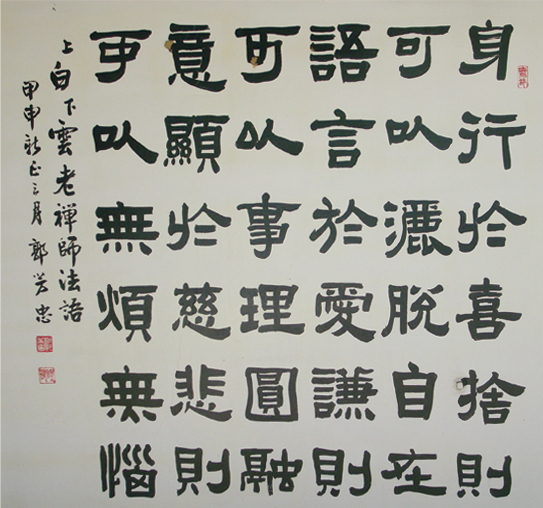 身行於喜捨則
可以灑脫自在
語言於愛謙則
可以事理圓融
意顯於慈悲則
可以無煩無惱
上白下雲老禪師法語
甲申新正三月 鄭芳忠